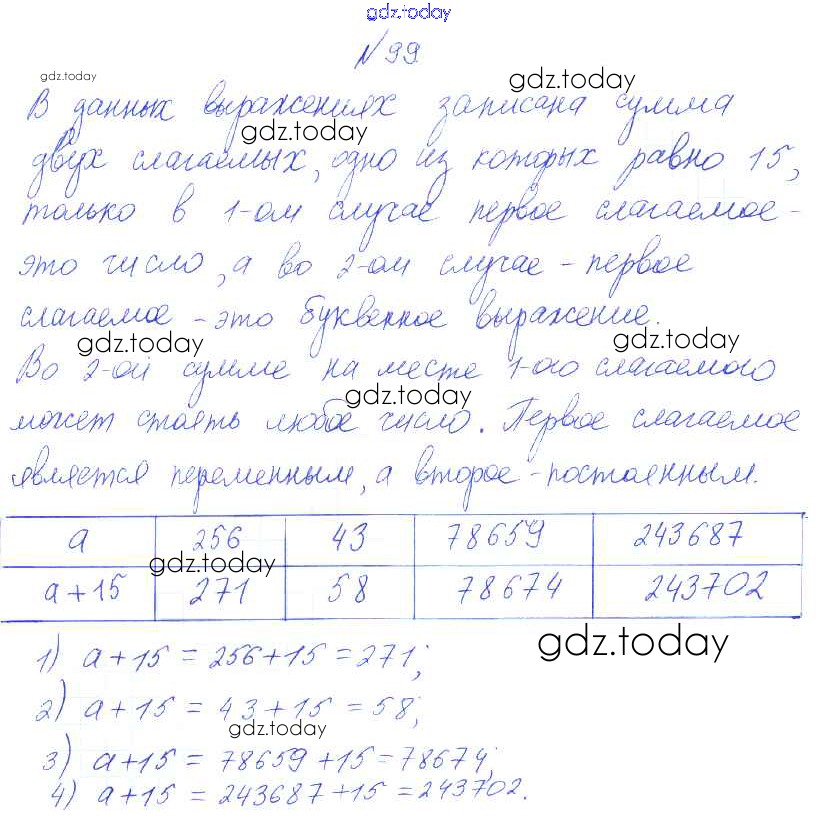 gdz.today
№99
gdz.today
gdz.today
В данных выражениях записана сумма
gdz.today
двух слагаемых, одно из которых равно 15,
только в 1-ом случае первое слагаемое -
это число, а во 2-ом случае - первое
слагаемое - это буквенное выражение.
gdz.today
gdz.today
Во 2-ой сумме на месте 1-ого слагаемого
gdz.today
может стоять любое число. Первое слагаемое
является переменным, а второе - постоянным.
a 256 43 78659 243687
gdz.today
a+15 271 58 78674 243702
gdz.today
1) a+15 = 256+15 = 271;
2) a+15 = 43+15 = 58;
gdz.today
3) a+15 = 78659+15=78674;
4) a+15 = 243687+15 = 243702.